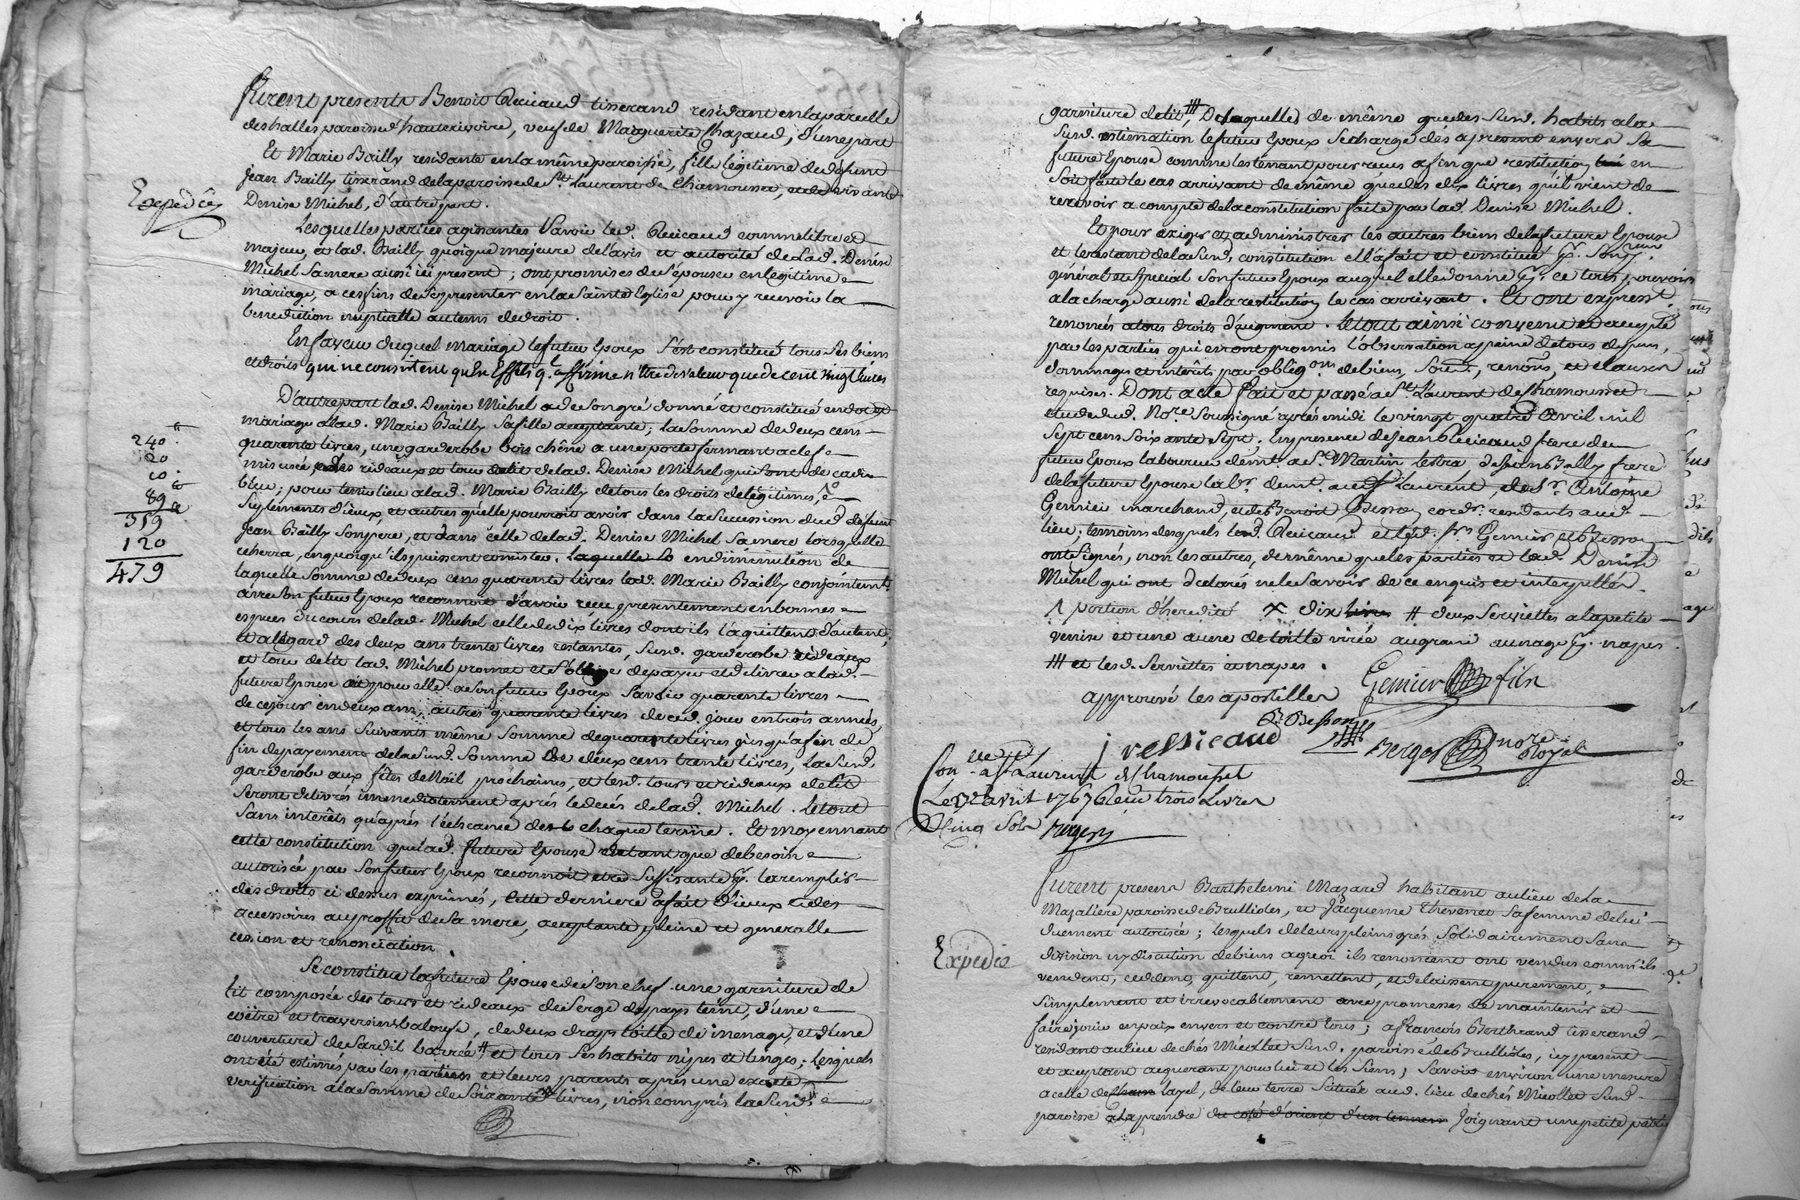 Expediée
furent presents Benoit tisserand residant en la parcelle
des halles paroisse d'hauterivoire, veuf de Marguerite Chazaud, d'une part
Et Marie Bailly residante en la même paroisse, fille legitime de defunt
Jean Bailly tisserand de la paroisse de St. Laurent de Chamousset, et de vivante
Denise Michel, d'autre part.
Lesquelles parties agissantes savoir led. comme libre et
majeur, et lad. Bailly quoique majeure de l'avis et autorité de lad. Denise
Michel sa mere aussi ici present; ont promises de s'epouser en legitime
mariage, a ces fins de se presenter en la Sainte Eglise pour y recevoir la
benediction nuptialle au tems de droit.
En faveur duquel mariage le futur Epoux s'est constitué tous ses biens
et droits qui ne consistent qu'En Effets q. affirme n'être de valeur que de cent vingt livres
D'autre part lad. Denise Michel a de son gré donné et constitué en dot et
mariage a lad. Marie Bailly sa fille acceptante; la somme de deux cens
quarante livres, une garderobe bois chêne a une porte fermant a clef
mi usée des rideaux et tour de lit de lad. Denise Michel qui sont de cadis
bleu; pour tenir lieu a lad. Marie Bailly de tous les droits de légitimes,
suplements d'iceux, et autres qu'elle pourroit avoir dans la succession dud. defunt
Jean Bailly son pere, et dans celle de lad. Denise Michel sa mere lorsqu'elle
echerra, en quoi qu'ils puissent consister. Laquelle en diminution de
laquelle somme de deux cens quarante livres lad. Marie Bailly conjointement
avec son futur Epoux reconnoit d'avoir reçu presentement en bonnes
especes du cours de lad. Michel celle de dix livres dont ils l'aquittent d'autant,
et a l'égard des deux cens trente livres restantes, susd. garderobe rideaux
et tour de lit lad. Michel promet et s'oblige de payer et delivrer a lad.
future Epouse ou pour elle a son futur Epoux savoir quarante livres
de ce jour en deux ans, autres quarante livres de ced. jour en trois années,
et tous les ans suivants même somme de quarante livres jusqu'a fin de
fin de payement de la susd. somme de deux cens trente livres, la susd.
garderobe aux fêtes de Noël prochaines, et lesd. tours et rideaux de lit
seront delivrés immediatement après le decés de lad. Michel. Le tout
sans interêts qu'après l'écheance de chaque terme. Et moyennant
cette constitution que lad. future Epouse entant que de besoin
autorisée par son futur Epoux reconnoit être suffisante pr. la remplir
des droits ci dessus exprimés, cette derniere a fait d'iceux et des
accessoires au proffit de sa mere, acceptante pleine et generalle
cession et renonciation.
Se constitue la future Epouse de son chef une garniture de
lit composée des tours et rideaux de serge de pays teint, d'une
coëtre et traversin baloufe, de deux draps toille de menage, et d'une
couverture de sardil barrée # et tous ses habits nipes et linges; lesquels
ont été estimés par les parties et leurs parents après une exacte
verification a la somme de soixante livres, non compris la susd.
240
20
10
89
359
120
479
garniture de lit, De laquelle de même que des susd. habits a la
susd. estimation le futur Epoux se charge dès a present envers sa
future Epouse comme les tenant pour reçus afin que restitution en
soit faite le cas arrivant de même que des dix livres qu'il vient de
recevoir a compte de la constitution faite par lad. Denise Michel.
Et pour exiger et administrer les autres biens de la future Epouse
et le restant de la susd. constitution elle a fait et constitué pr. son procureur
général et special son futur Epoux auquel elle donne pr. ce tous pouvoirs
a la charge aussi de la restitution le cas arrivant. Et ont expresst.
renoncés a tous droits d'augment. Le tout ainsi convenu et accepté
par les parties qui en ont promis l'observation a peine de tous depens,
dommages et interêts par obligon. de biens, soumis, renons. et clauses
requises. Dont acte fait et passé a St. Laurent de Chamousset
etude dud. Nore. soussigné après midi le vingt quatre Avril mil
sept cens soixante sept. En presence de Jean frere du
futur Epoux laboureur demt. a St. Martin lestra de Jean Bailly frere
de la future Epouse labr. demt. aud. St. Laurent, de Sr. Antoine
Genier marchand, et de Benoit Besson cordr. residants aud.
lieu; temoins desquels led. et led. srs. Genier et Besson
ont signés, non les autres, de même que les parties et lad. Denise
Michel qui ont declarés ne le savoir de ce enquis et interpellés.
Λ portion d'heredité X dix livres # deux serviettes a la petite
venise et une autre de toille virée au grand ouvrage pr. napes.
### et lesd. serviettes et napes.
approuvé les apostilles Genier fils
B Besson
Berger nore. Royal
Con.lle a St Laurent de Chamousset
Le avril 1767 Reçu trois Livres
Cinq Sols Berger
Expediée
furent presens Barthelemi Mazard habitant au lieu de la
Mazaliere paroisse de Brullioles, et Jacqueme Thevenet sa femme de lui
duement autorisée; lesquels de leurs pleins grés solidairement sans
division ny discution de biens a quoi ils renoncent ont vendus comme ils
vendent, ceddent, quittent, remettent, et delaissent purement,
simplement et irrevocablement avec promesses de maintenir et
faire jouir en paix envers et contre tous; a françois Berthrand tisserand
residant au lieu de chés Micollet susd. paroisse de Brullioles, icy present
et acceptant acquerant pour lui et les siens; Savoir environ une mesure
a celle de layel, de leur terre située aud. lieu de chés Micollet susd.
paroisse a la prendre du coté d'orient d'un tenant joignant une petite